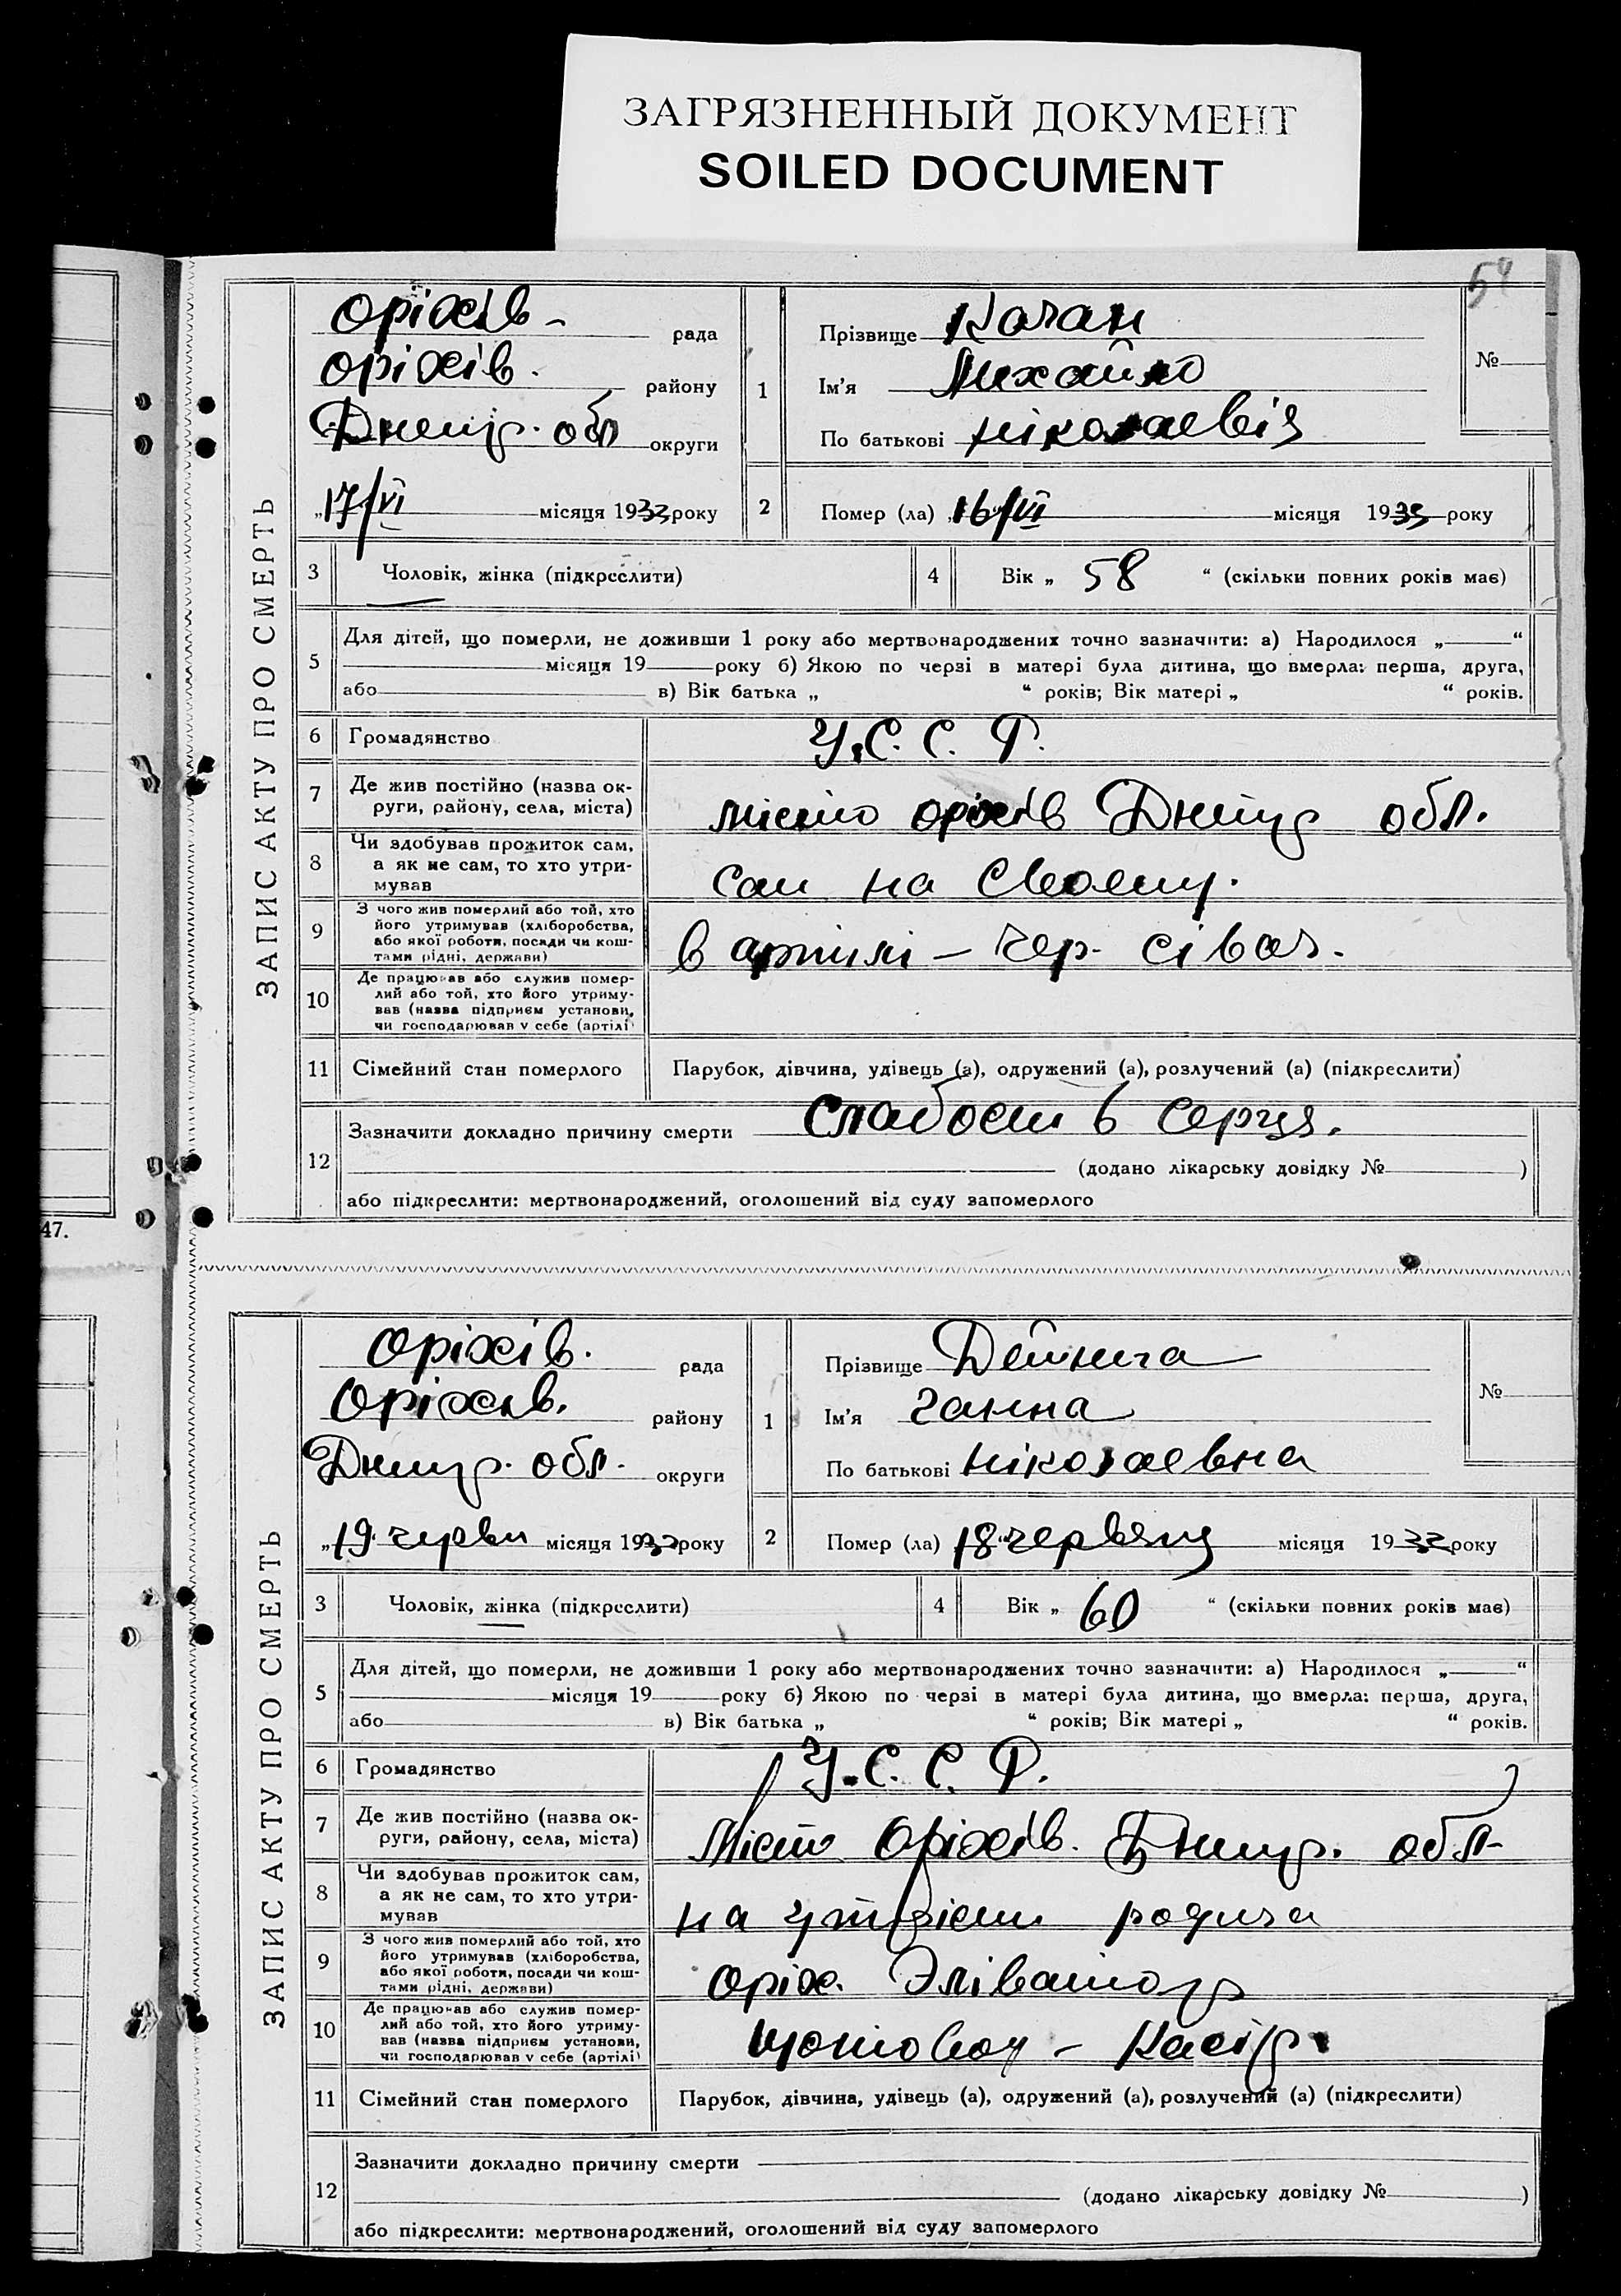 ЗАГРЯЗНЕННЫЙ ДОКУМЕНТ
SOILED DOCUMENT
47.
54
ЗАПИС АКТУ ПРО СМЕРТЬ
Оріхів - рада
Оріхів. району
Днепр. обл округи
„17/VI місяця 1933 року
1
Прізвище Качан
Ім’я Михайло
По батькові Ніколаевіч
№
2 Помер (ла) „16/VI місяця 1933 року
3 Чоловік, жінка (підкреслити)
4 Вік „ 58 “ (скільки повних років має)
5 Для дітей, що померли, не доживши 1 року або мертвонароджених точно зазначити: а) Народилося „ “
місяця 19 року б) Якою по черзі в матері була дитина, що вмерла: перша, друга,
або в) Вік батька „ “ років; Вік матері „ “ років.
6 Громадянство У.С.С.Р.
7 Де жив постійно (назва ок-
руги, району, села, міста) місто Оріхів Дніпр обл.
8 Чи здобував прожиток сам,
а як не сам, то хто утри-
мував сам на своему.
9 З чого жив померлий або той, хто
його утримував (хліборобства,
або якої роботи, посади чи кош-
тами рідні, держави) в артилі – Чер. сівач.
10 Де працював або служив помер-
лий або той, хто його утриму-
вав (назва підприєм установи,
чи господарював у себе (артілі)
11 Сімейний стан померлого Парубок, дівчина, удівець (а), одружений (а), розлучений (а) (підкреслити)
12 Зазначити докладно причину смерти Слабость в серця.
(додано лікарську довідку № )
або підкреслити: мертвонароджений, оголошений від суду запомерлого
ЗАПИС АКТУ ПРО СМЕРТЬ
Оріхів. рада
Оріхів. району
Днепр. обл. округи
„19. червн місяця 1933 року
1
Прізвище Дейнега
Ім’я Ганна
По батькові Ніколаевна
№
2 Помер (ла) „18. червяця місяця 1933 року
3 Чоловік, жінка (підкреслити)
4 Вік „ 60 “ (скільки повних років має)
5 Для дітей, що померли, не доживши 1 року або мертвонароджених точно зазначити: а) Народилося „ “
місяця 19 року б) Якою по черзі в матері була дитина, що вмерла: перша, друга,
або в) Вік батька „ “ років; Вік матері „ “ років.
6 Громадянство У.С.С.Р.
7 Де жив постійно (назва ок-
руги, району, села, міста) Місто Оріхів. Днепр. обл.
8 Чи здобував прожиток сам,
а як не сам, то хто утри-
мував на утрієні родича
9 З чого жив померлий або той, хто
його утримував (хліборобства,
або якої роботи, посади чи кош-
тами рідні, держави) Оріх. Эліватор
10 Де працював або служив помер-
лий або той, хто його утриму-
вав (назва підприєм установи,
чи господарював у себе (артілі) – Касір.
11 Сімейний стан померлого Парубок, дівчина, удівець (а), одружений (а), розлучений (а) (підкреслити)
12 Зазначити докладно причину смерти
(додано лікарську довідку № )
або підкреслити: мертвонароджений, оголошений від суду запомерлого